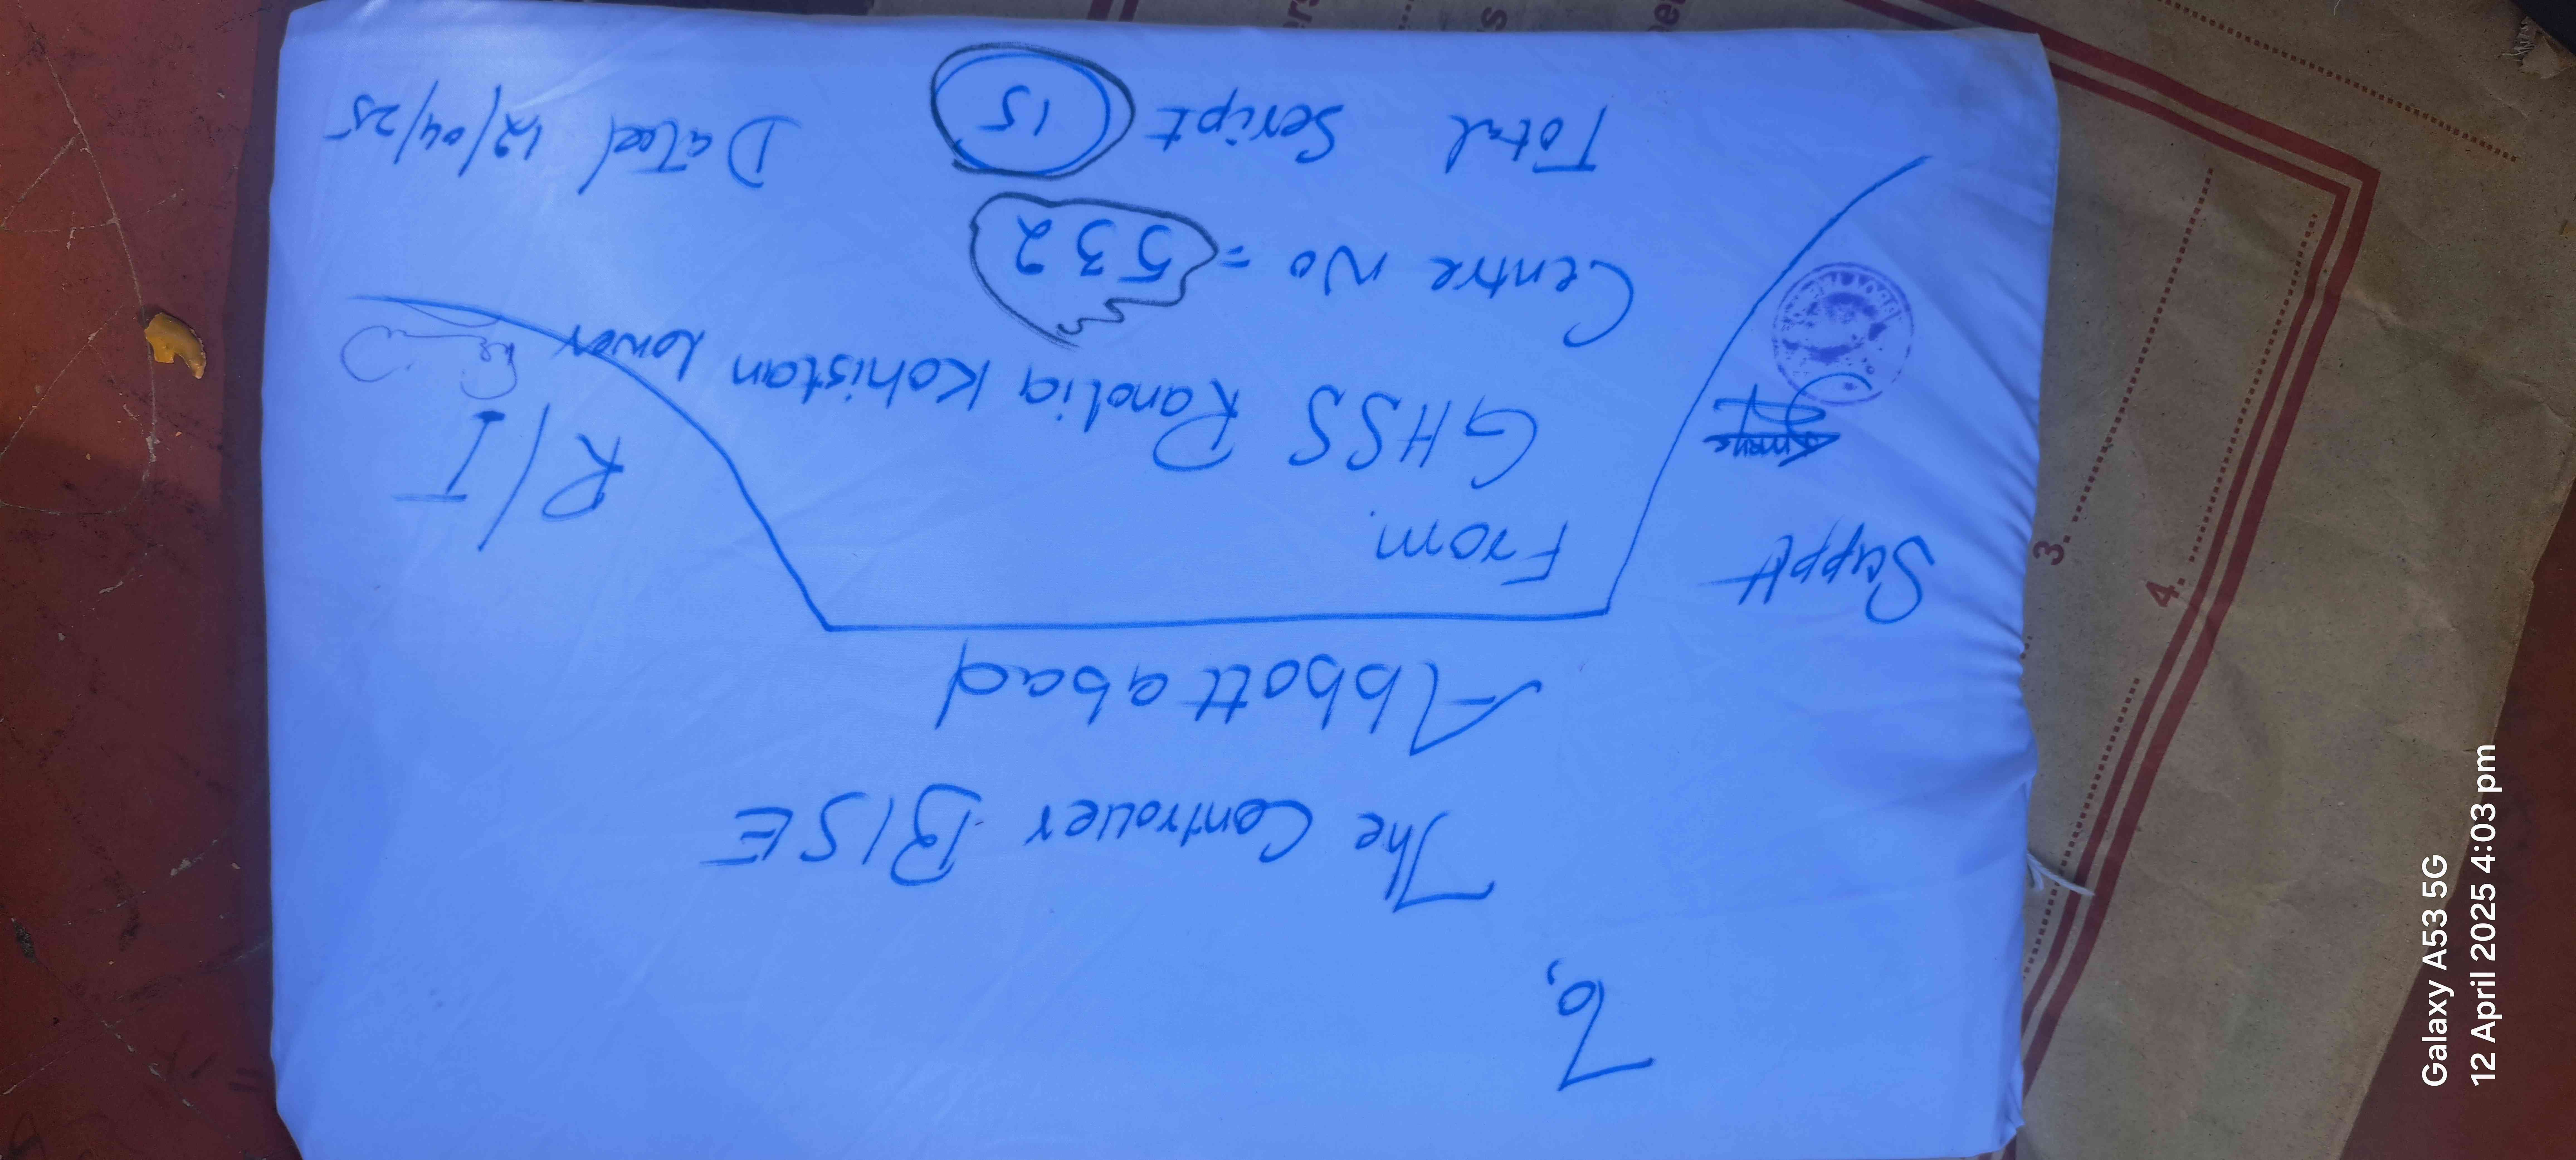 To,
The Controller BISE
Abbottabad
From.
GHSS Ranolia Kohistan Lower
Centre No = 532
Total Script 15 Dated 12/04/25
Suppdt
R/I
3.
4.
Galaxy A53 5G
12 April 2025 4:03 pm